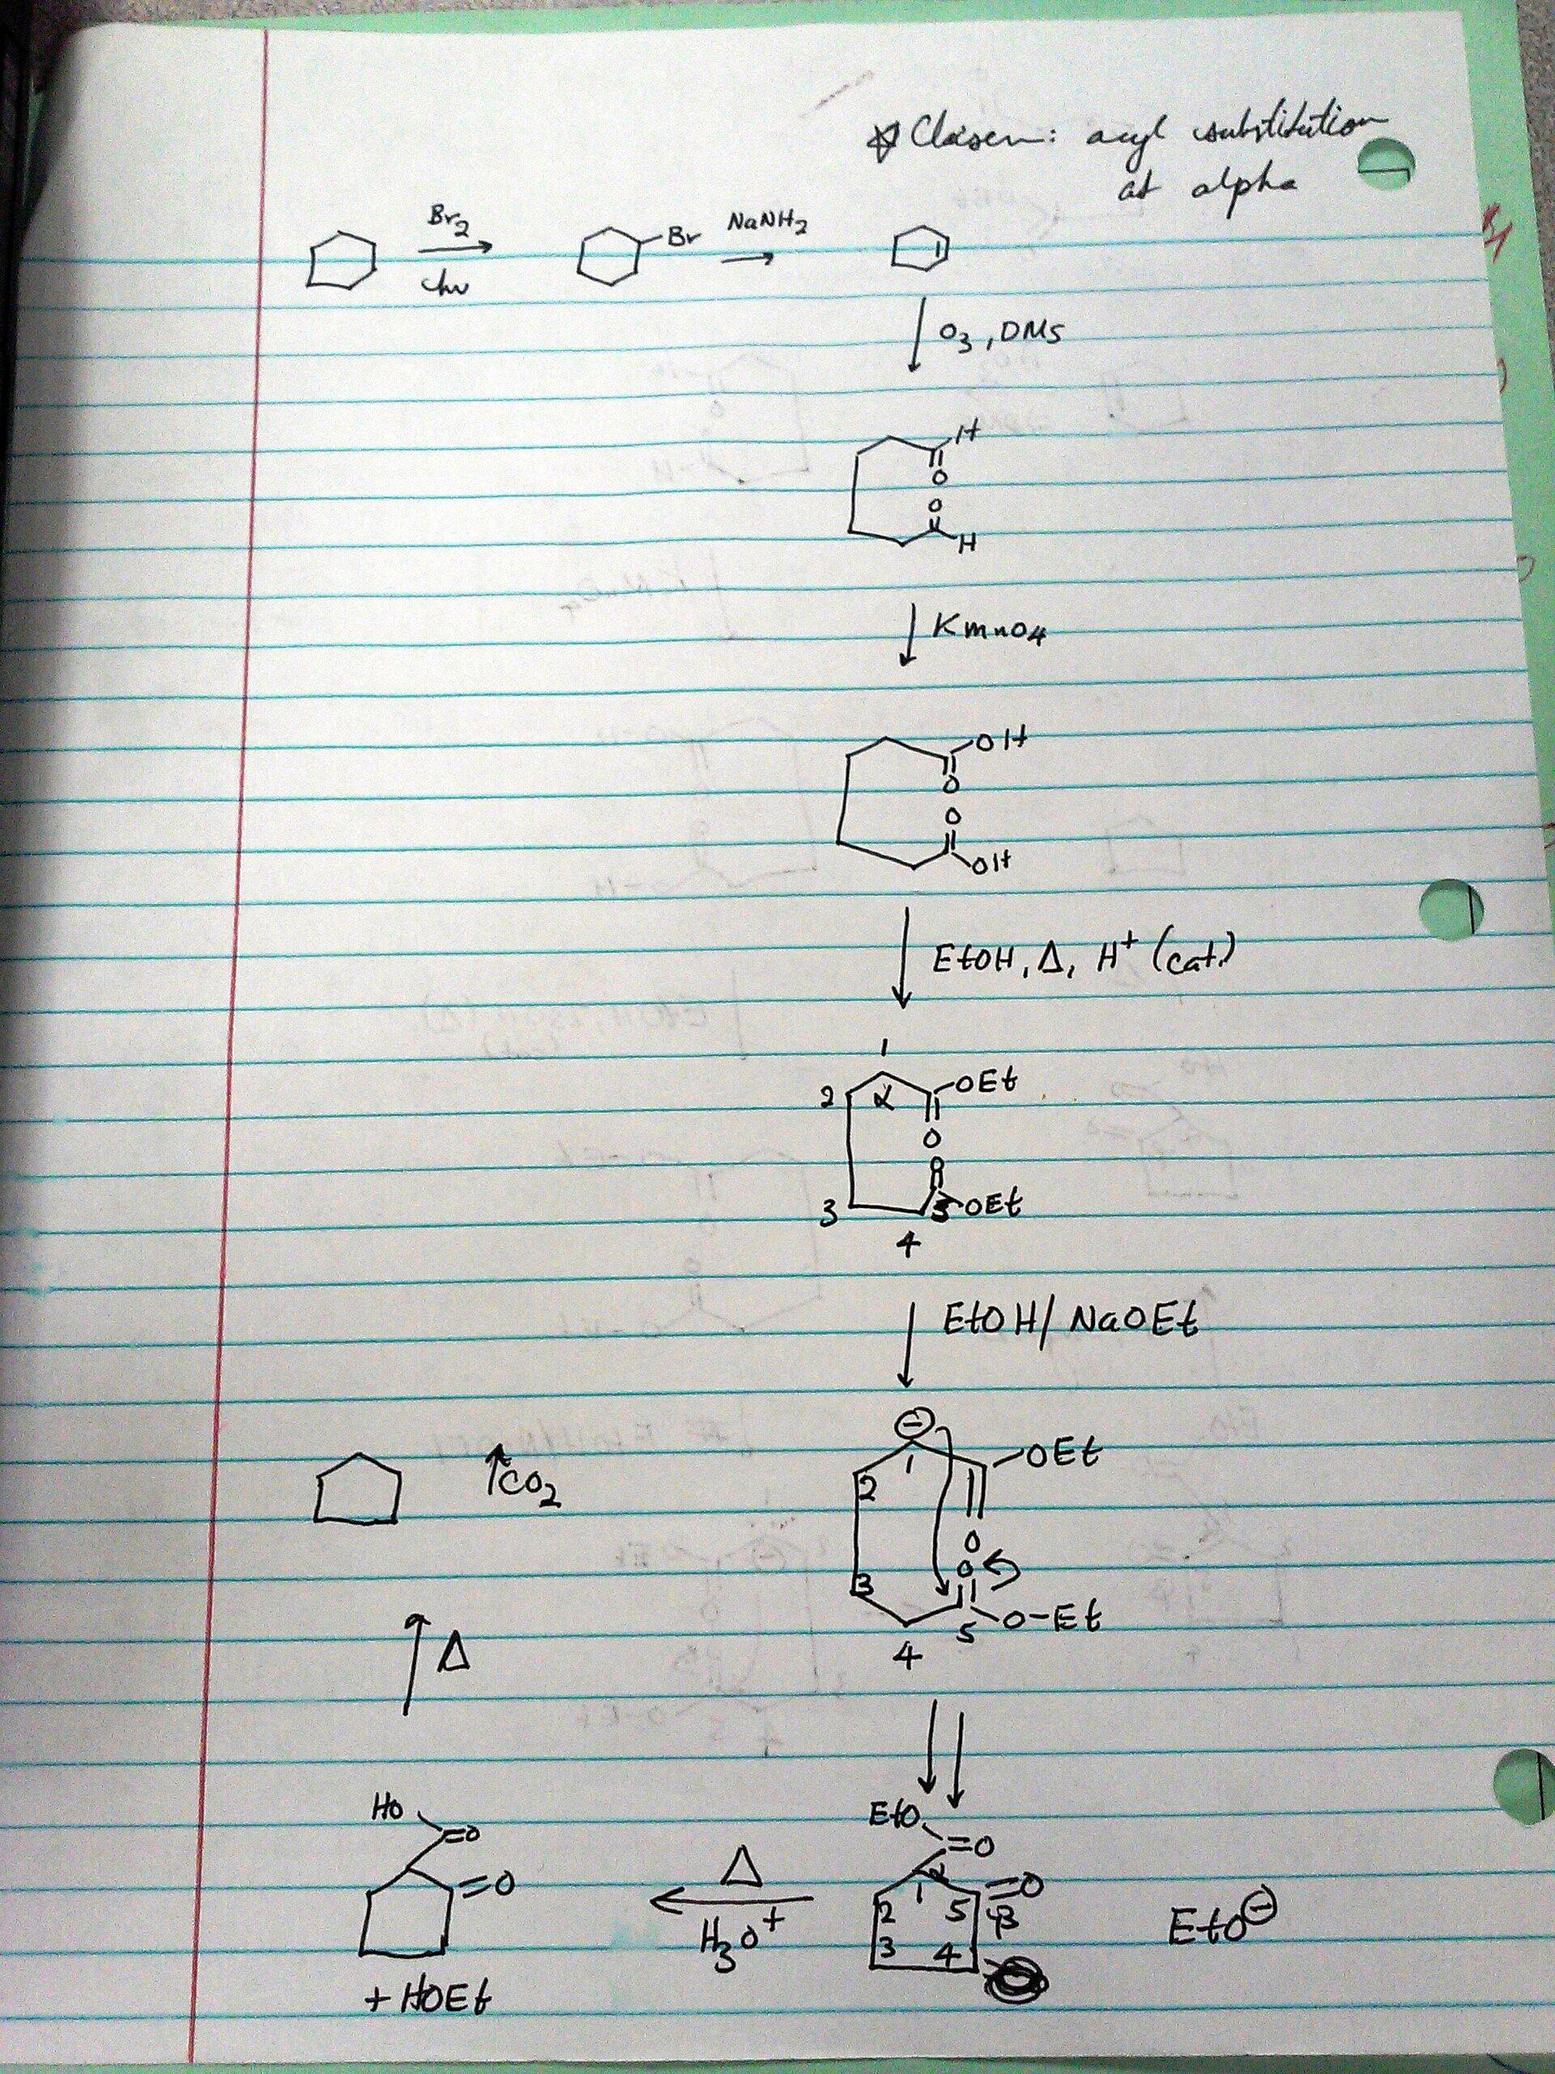 ☆ Claisen: acyl substitution
at alpha
Br2
hν
Br
NaNH2
O3, DMS
H
O
O
H
KmnO4
OH
O
O
OH
EtOH, Δ, H+ (cat.)
1
2 α OEt
O
O
3 5 OEt
4
EtOH/ NaOEt
⊖
1 OEt
2
↑CO2
O
O
3
5 O-Et
4
Δ
HO
=O
=O
+ HOEt
Δ
H3O+
EtO
=O
α
1 =O
2 5 β
3 4
EtO⊖